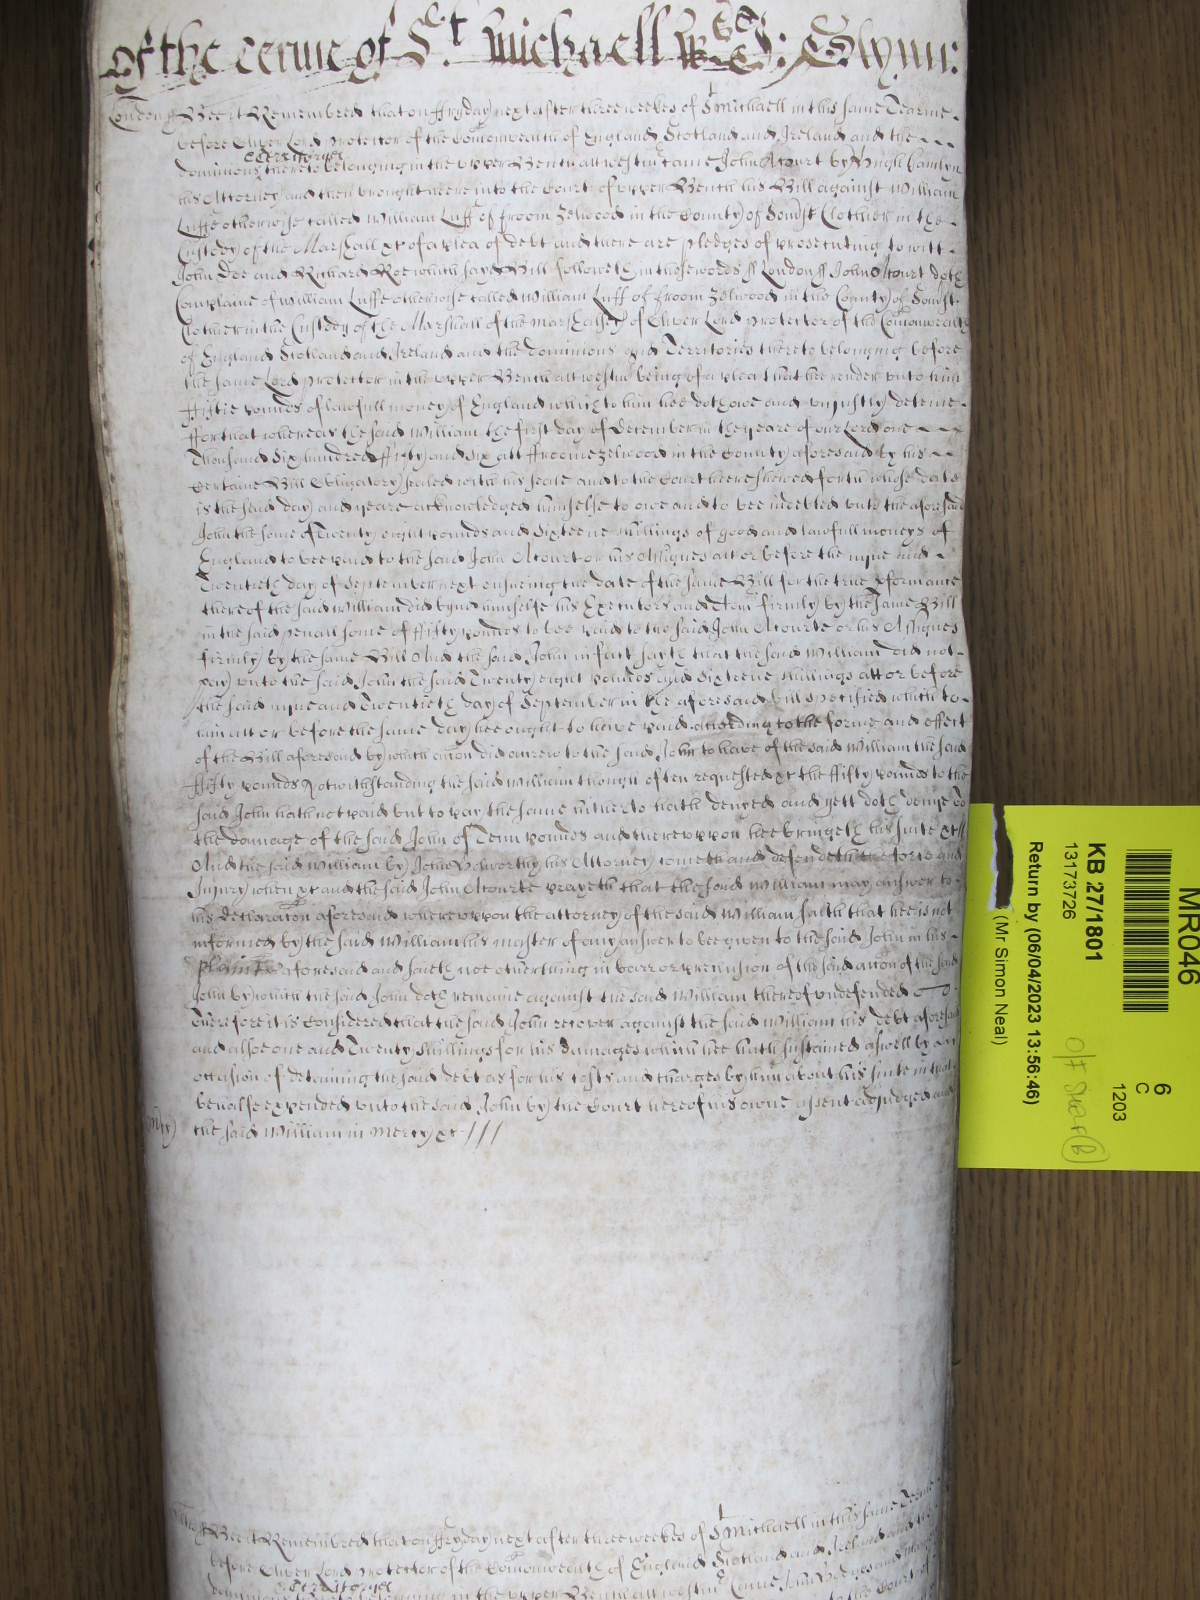 Of the terme of St. Michaell Glynn:
London ss Bee it Remembred that on ffryday next after three weekes of St Michaell in this same Tearme
before Oliver Lord Protector of the Comonwealth of England Scotland and Ireland and the
Territories
dominions thereto belonging in the upper Bench att westmr came John Acourt by Hugh Hamlyn
his Attorney and then brought here into the Court of upper Bench his Bill against William
Luffe otherwise called William Luff of ffroom Zelwood in the County of Somst Clothier in the
Custody of the Marshall &c of a plea of debt and there are pledges of prosecuting to witt
John Doe and Richard Roe which said Bill followeth in these words ss London ss John Acourt doth
Complaine of William Luffe otherwise called William Luff of ffroom Zelwood in the County of Somst
Clothier in the Custody of the Marshall of the Marshalsey of Oliver Lord Protector of the Comonwealth
of England Scotland and Ireland and the dominions and Territories thereto belonging before
the same Lord Protector in the upper Bench att westmr being of a plea that hee render unto him
ffiftie pounds of lawfull money of England which to him hee doth owe and unjustly deteine
ffor that whereas the said William the first day of December in the yeare of our Lord one
Thousand Six hundred ffifty and six att ffroome Zelwood in the County aforesaid by his
Certaine Bill Obligatory sealed with his seale and to the Court heere shewed forth whose date
is the said day and yeare acknowledged himselfe to owe and to bee indebted unto the aforesaid
John the some of Twenty eight pounds and Sixteene shillings of good and lawfull moneys of
England to bee paid to the said John Acourt or his Assignes att or before the nyne and
Twentieth day of September next ensueing the date of the same Bill for the true pformance
thereof the said William did bynd himselfe his Executors and Admi firmly by the same Bill
in the said penall some of ffifty pounds to bee paid to the said John Acourte or his Assignes
firmly by the same Bill And the said John in fact sayth that the said William did not
pay unto the said John the said Twenty eight pounds and Sixteene shillings att or before
the said nyne and Twentieth day of September in the aforesaid bill specified which to
him att or before the same day hee ought to have paid according to the forme and effect
of the Bill aforesaid by which accon did accrew to the said John to have of the said William the said
ffifty pounds Notwithstanding the said William though often requested &c the ffifty pounds to the
said John hath not paid but to pay the same hitherto hath denyed and yett doth denye to
the damage of the said John of Tenn pounds and thereuppon hee bringeth his suite &c
And the said William by John his Attorney cometh and defendeth the force and
Injury when &c and the said John Acourte prayeth that the said William may answer to
his declaracon aforesaid whereuppon the attorney of the said William saith that hee is not
informed by the said William his master of any answer to bee given to the said John in his
plaint aforesaid and saieth not otherthing in barr or preclusion of the said accon of the said
John by which the said John doth remaine against the said William thereof undefended
Therefore it is Considered that the said John recover against the said William his debt aforesaid
and alsoe one and Twenty shillings for his damages which hee hath susteined aswell by
occasion of detaining the said debt as for his costs and charges by him about his suite in that
behalfe expended unto the said John by the Court here of his owne assent adjudged and
mercy the said William in mercy &c ///
Bee it Remembred that on ffryday next after three weekes of St Michaell in this same Terme
before Oliver Lord Protector of the Comonwealth of England Scotland and Ireland and the
Territories
dominions thereto belonging in the upper Bench att westmr Came John
MR046
6
C
1203
KB 27/1801
13173726
Return by (06/04/2023 13:56:46)
(Mr Simon Neal)